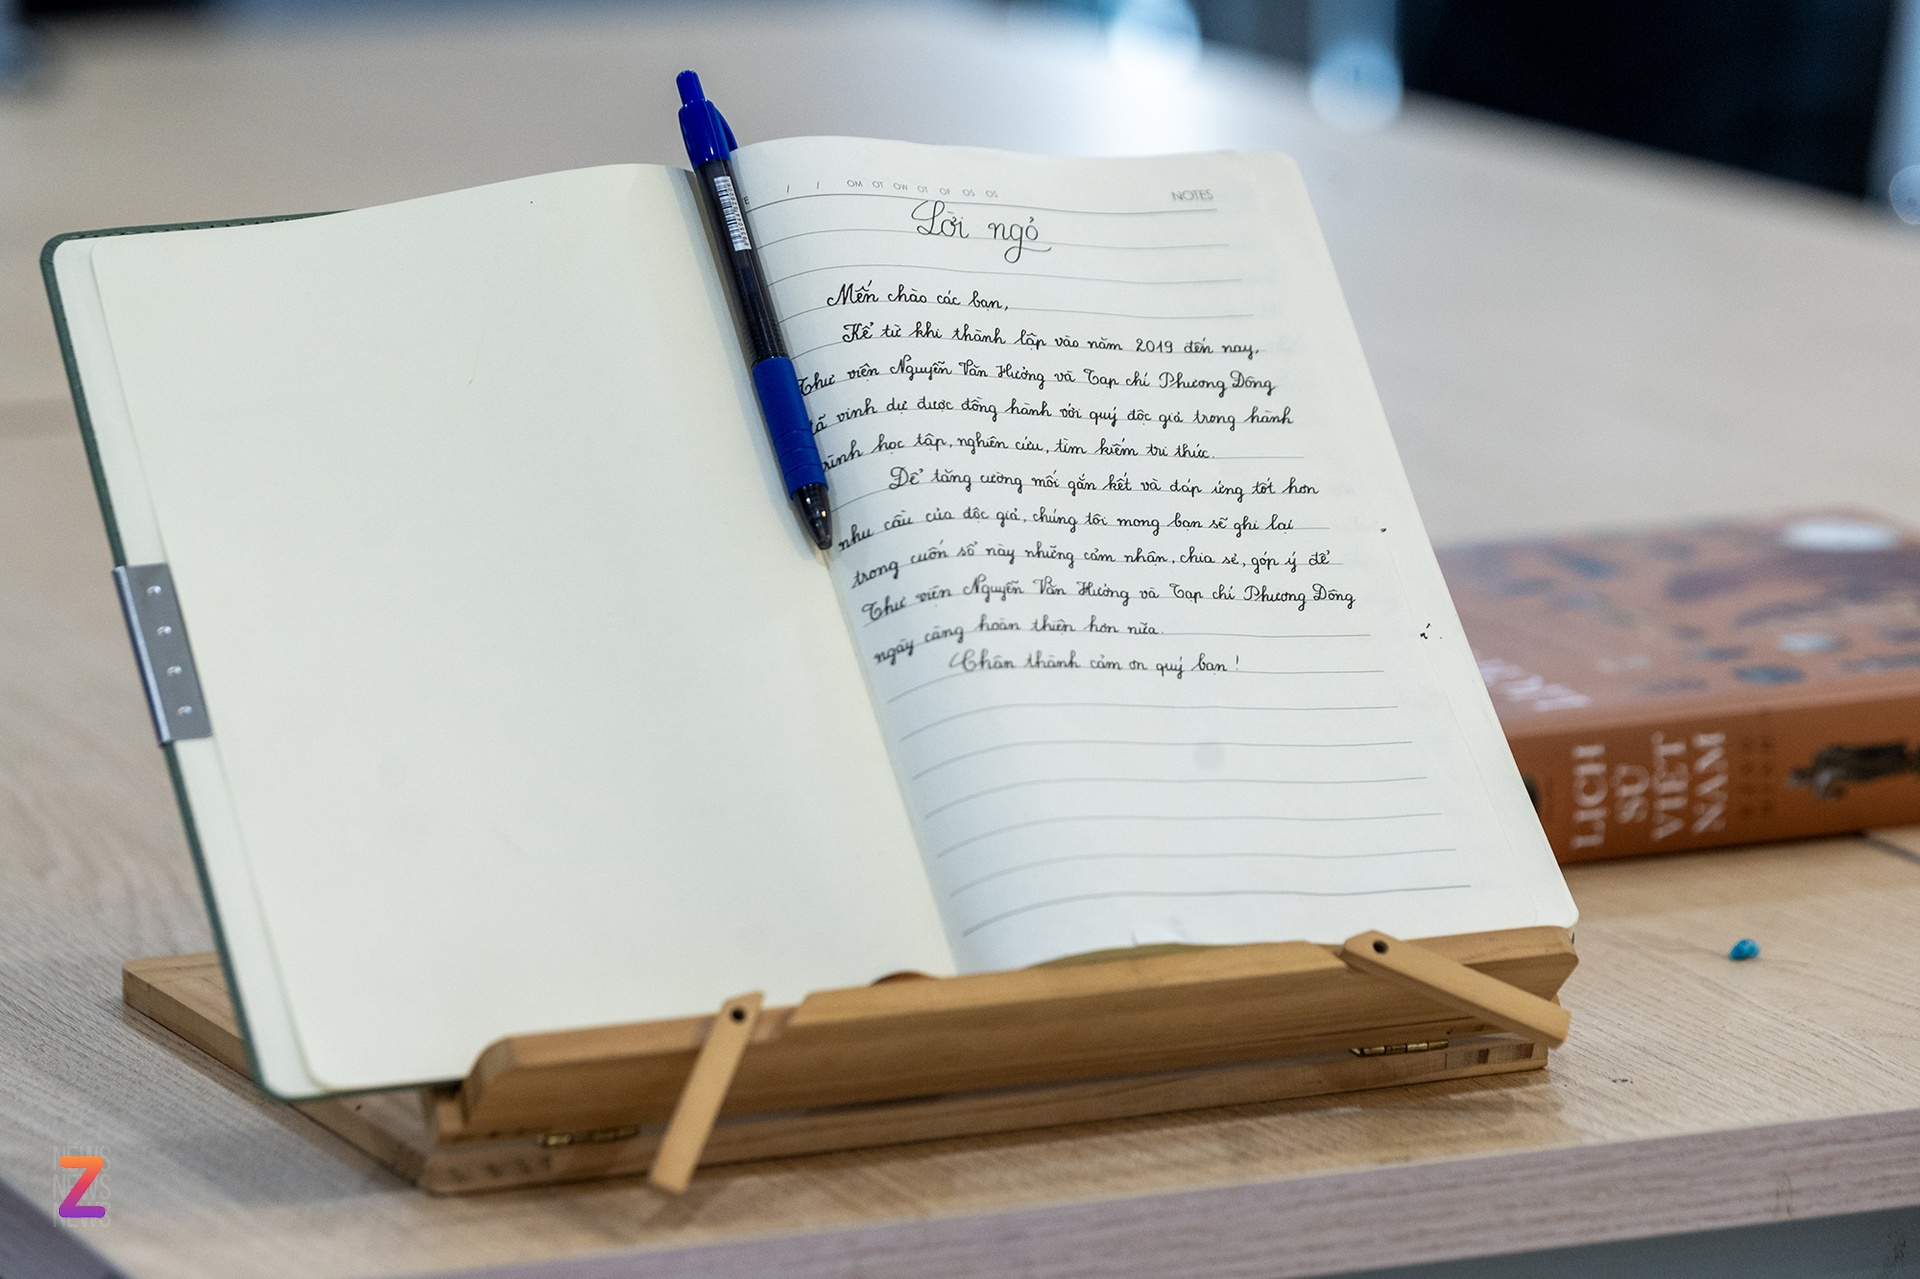 OM OT OW OT OF OS OS
NOTES
Lời ngỏ
Mến chào các bạn,
Kể từ khi thành lập vào năm 2019 đến nay,
Thư viện Nguyễn Văn Hưởng và Tạp chí Phương Đông
đã vinh dự được đồng hành với quý độc giả trong hành
trình học tập, nghiên cứu, tìm kiếm tri thức.
Để tăng cường mối gắn kết và đáp ứng tốt hơn
nhu cầu của độc giả, chúng tôi mong bạn sẽ ghi lại
trong cuốn sổ này những cảm nhận, chia sẻ, góp ý để
Thư viện Nguyễn Văn Hưởng và Tạp chí Phương Đông
ngày càng hoàn thiện hơn nữa.
Chân thành cảm ơn quý bạn!
LỊCH
SỬ
VIỆT
NAM
NEWS
Z
NEWS
NEWS